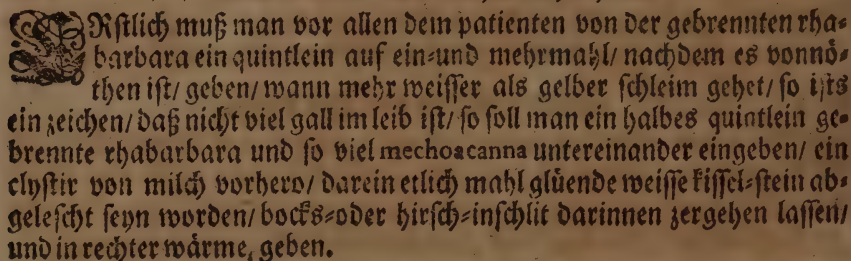 ERstlich muß man vor allen dem patienten von der gebrennten rha-
barbara ein quintlein auf ein-und mehrmahl/ nachdem es vonnö-
then ist/ geben/ wann mehr weisser als gelber schleim gehet/ so ists
ein zeichen/ daß nicht viel gall im leib ist/ so soll man ein halbes quintlein ge-
brennte rhabarbara und so viel mechoacanna untereinander eingeben/ ein
clystir von milch vorhero/ darein etlich mahl glüende weisse kissel-stein ab-
gelescht seyn worden/ bocks-oder hirsch-inschlit darinnen zergehen lassen/
und in rechter wärme, geben.